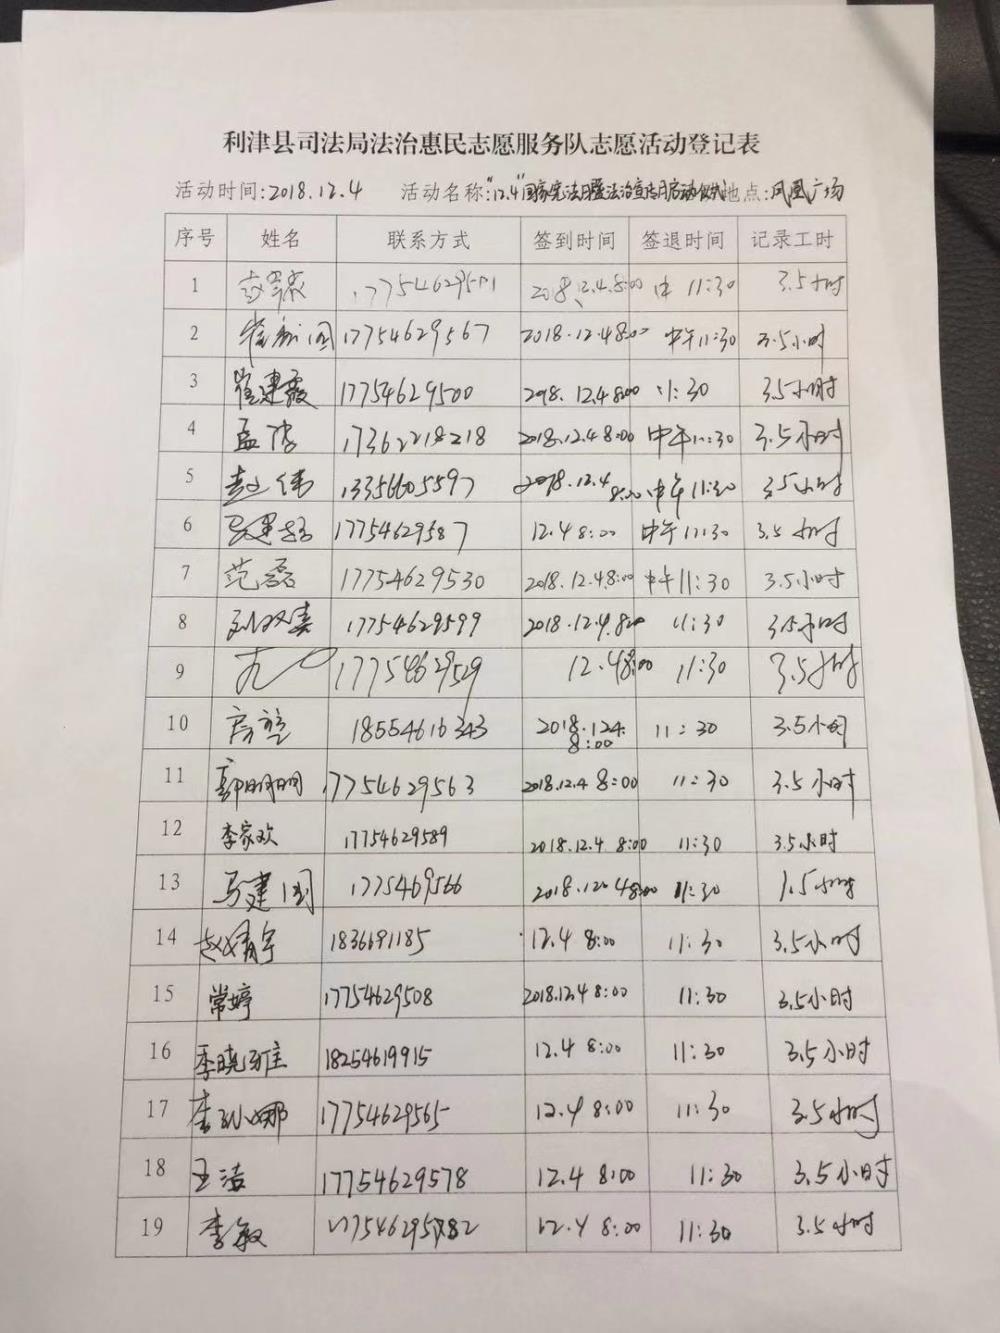 利津县司法局法治惠民志愿服务队志愿活动登记表
活动时间:2018.12.4 活动名称:"12.4"国家宪法日暨法治宣传月启动仪式 地点:凤凰广场
序号 姓名 联系方式 签到时间 签退时间 记录工时
1 2018.12.4.8:00 中 11:30 3.5小时
2 17754629567 2018.12.4 8:00 中午11:30 3.5小时
3 崔建霞 17754629500 2018.12.4 8:00 11:30 3.5小时
4 孟 17362218218 2018.12.4 8:00 中午11:30 3.5小时
5 赵伟 13356605597 2018.12.4 8:00 中午11:30 3.5小时
6 17754629587 12.4 8:00 中午11:30 3.5小时
7 范磊 17754629530 2018.12.4 8:00 中午11:30 3.5小时
8 17754629599 2018.12.4.8:00 11:30 3.5小时
9 17754629529 12.4 8:00 11:30 3.5小时
10 18554616343 2018.12.4. 8:00 11:30 3.5小时
11 郭明明 17754629563 2018.12.4 8:00 11:30 3.5小时
12 李家欢 17754629589 2018.12.4 8:00 11:30 3.5小时
13 马建国 1775469566 2018.12.4 8:00 11:30 1.5小时
14 赵婧宇 1836691185 12.4 8:00 11:30 3.5小时
15 常婷 17754629508 2018.12.4 8:00 11:30 3.5小时
16 季晓雅 18254619915 12.4 8:00 11:30 3.5小时
17 李孙娜 17754629565 12.4 8:00 11:30 3.5小时
18 王洁 17754629578 12.4 8:00 11:30 3.5小时
19 李敏 12.4 8:00 11:30 3.5小时